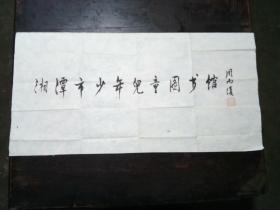 湘潭市少年儿童图书馆
周而复